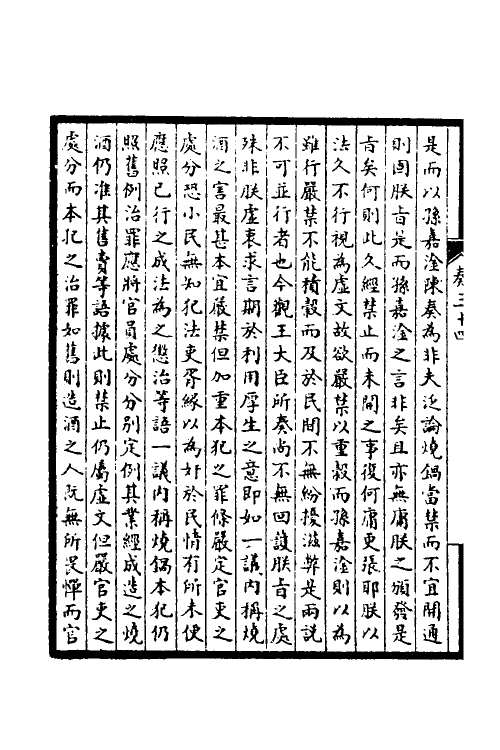 是而以孫嘉淦陳奏為非夫泛論燒鍋當禁而不宜開通
則固朕㫖是而孫嘉淦之言非矣且亦無庸朕之頒發是
㫖矣何則此久經禁止而未開之事復何庸更張耶朕以
法久不行視為虛文故欲嚴禁以重穀而孫嘉淦則以為
雖行嚴禁不能積穀而及於民間不無紛擾滋弊是兩説
不可並行者也今觀王大臣所奏尚不無回護朕㫖之處
殊非朕虛衷求言期於利用厚生之意即如一議内稱燒
酒之害最甚本宜嚴禁但加重本犯之罪條嚴定官吏之
處分恐小民無知犯法吏胥緣以為奸於民情有所未便
應照已行之成法為之懲治等語一議内稱燒鍋本犯仍
照舊例治罪應將官員處分分别定例其業經成造之燒
酒仍准其售賣等語據此則禁止仍屬虛文但嚴官吏之
處分而本犯之治罪如舊則造酒之人既無所畏憚而官
奏三十四